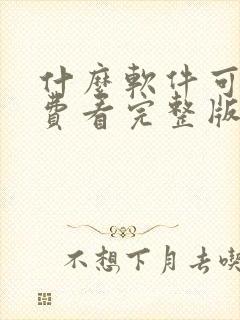 什麼軟件可
費看完整版
不想下月去喫